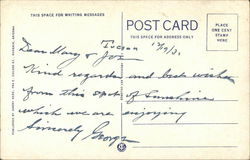 THIS SPACE FOR WRITING MESSAGES
POST CARD
THIS SPACE FOR ADDRESS ONLY
PLACE
ONE CENT
STAMP
HERE
Tucson
Dear Mary & Joe
Kind regards and best wishes
from this spot of Sunshine
which we are enjoying
Sincerely George